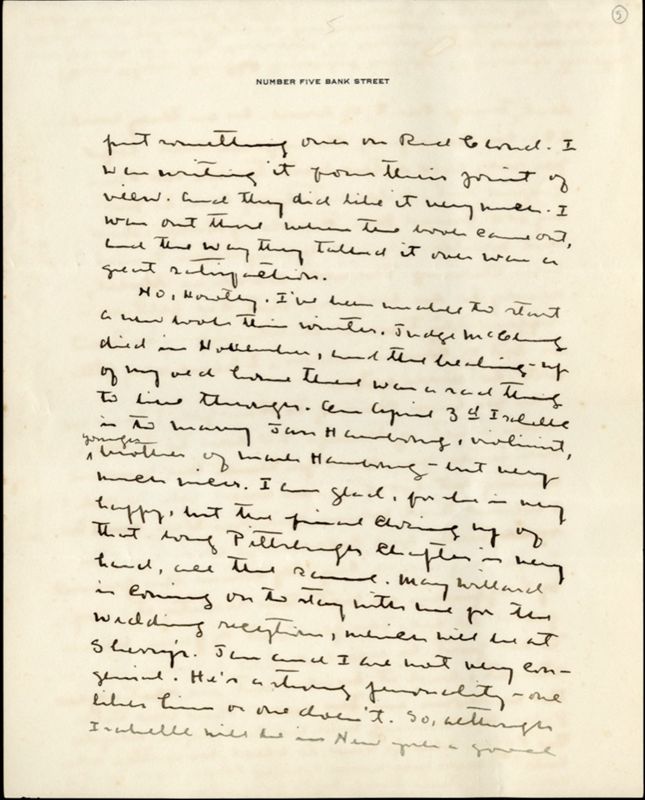 5
5
NUMBER FIVE BANK STREET
put something over on Red Cloud. I
was writing it from their point of
view. And they did like it very much. I
was out there when the book came out,
and the way they talked it over was a
great satisfaction.
No, I've been unable to start
a new book this winter. Judge McClung
died in November, and the breaking-up
of my old home there was a sad thing
to live through. On April 3d Isabelle
is to marry Jan Hambourg, violinist,
younger
^ brother of Mark Hambourg - but very
much nicer. I am glad, for she is very
happy, but the final closing up of
that long Pittsburgh chapter is very
hard, all the same. May Willard
is coming on to stay with me for the
wedding reception, which will be at
Sherry's. Jan and I are not very con-
genial. He's a strong personality - one
likes him or one doesn't. So, although
Isabelle will be in New York a good